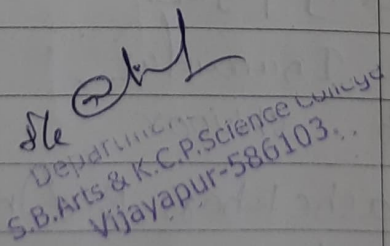 Department
S.B.Arts & K.C.P.Science College
Vijayapur-586103.